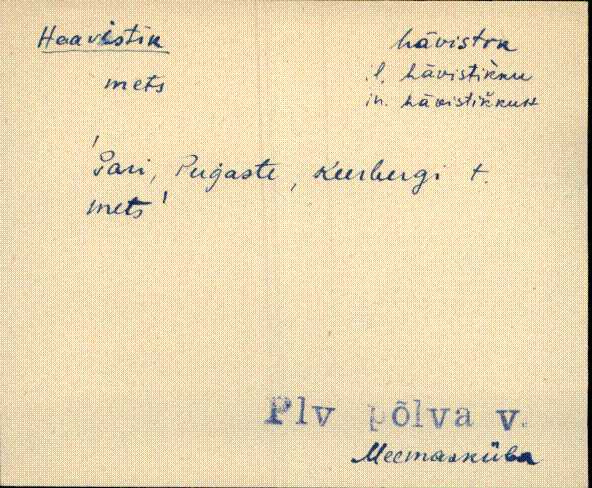 Haavistik
hävistɪk
mets
.l. hävistik̀ku
in. hävistikkuH
'Sari, Pugaste, Keerbergi t.
mets'
Plv põlva v.
Meemasküla